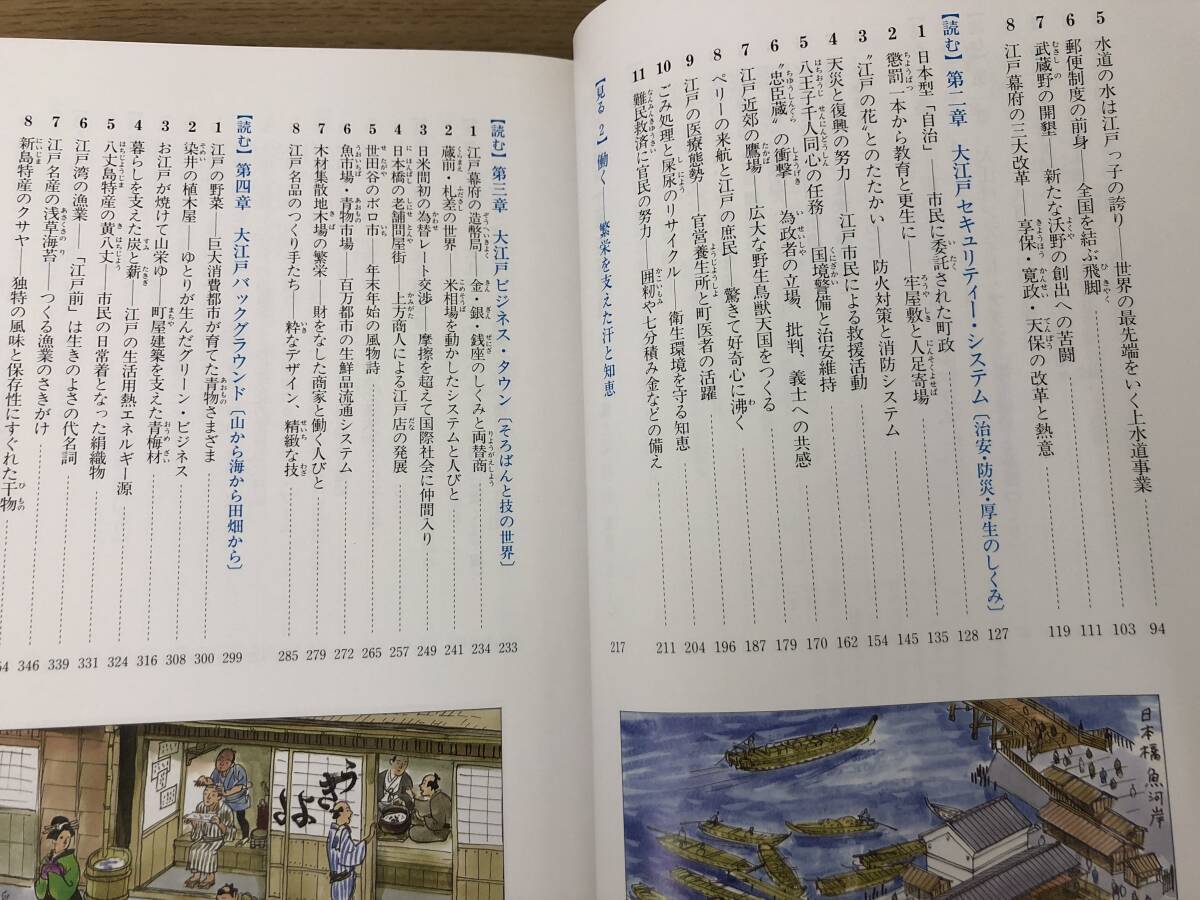 5 水道の水は江戸っ子の誇り——世界の最先端をいく上水道事業 94
6 郵便制度の前身——全国を結ぶ飛脚 103
7 武蔵野の開墾——新たな沃野の創出への苦闘 111
8 江戸幕府の三大改革——享保・寛政・天保の改革と熱意 119
【読む】第二章 大江戸セキュリティー・システム〔治安・防災・厚生のしくみ〕 127
1 日本型「自治」——市民に委託された町政 128
2 懲罰一本から教育と更生に——牢屋敷と人足寄場 135
3 “江戸の花”とのたたかい——防火対策と消防システム 145
4 天災と復興の努力——江戸市民による救援活動 154
5 八王子千人同心の任務——国境警備と治安維持 162
6 “忠臣蔵”の衝撃——為政者の立場、批判、義士への共感 170
7 江戸近郊の鷹場——広大な野生鳥獣天国をつくる 179
8 ペリーの来航と江戸の庶民——驚きて好奇心に沸く 187
9 江戸の医療態勢——官営養生所と町医者の活躍 196
10 ごみ処理と屎尿のリサイクル——衛生環境を守る知恵 204
11 難民救済に官民の努力——囲籾や七分積み金などの備え 211
【見る 2】働く——繁栄を支えた汗と知恵 217
【読む】第三章 大江戸ビジネス・タウン〔そろばんと技の世界〕 233
1 江戸幕府の造幣局——金・銀・銭座のしくみと両替商 234
2 蔵前・札差の世界——米相場を動かしたシステムと人びと 241
3 日米間初の為替レート交渉——摩擦を超えて国際社会に仲間入り 249
4 日本橋の老舗問屋街——上方商人による江戸店の発展 257
5 世田谷のボロ市——年末年始の風物詩 265
6 魚市場・青物市場——百万都市の生鮮品流通システム 272
7 木材集散地木場の繁栄——財をなした商家と働く人びと 279
8 江戸名品のつくり手たち——粋なデザイン、精緻な技 285
【読む】第四章 大江戸バックグラウンド〔山から海から田畑から〕 299
1 江戸の野菜——巨大消費都市が育てた青物さまざま 300
2 染井の植木屋——ゆとりが生んだグリーン・ビジネス 308
3 お江戸が焼けて山栄ゆ——町屋建築を支えた青梅材 316
4 暮らしを支えた炭と薪——江戸の生活用熱エネルギー源 324
5 八丈島特産の黄八丈——市民の日常着となった絹織物 331
6 江戸湾の漁業——「江戸前」は生きのよさの代名詞 339
7 江戸名産の浅草海苔——つくる漁業のさきがけ 346
8 新島特産のクサヤ——独特の風味と保存性にすぐれた干物 54
日本橋魚河岸